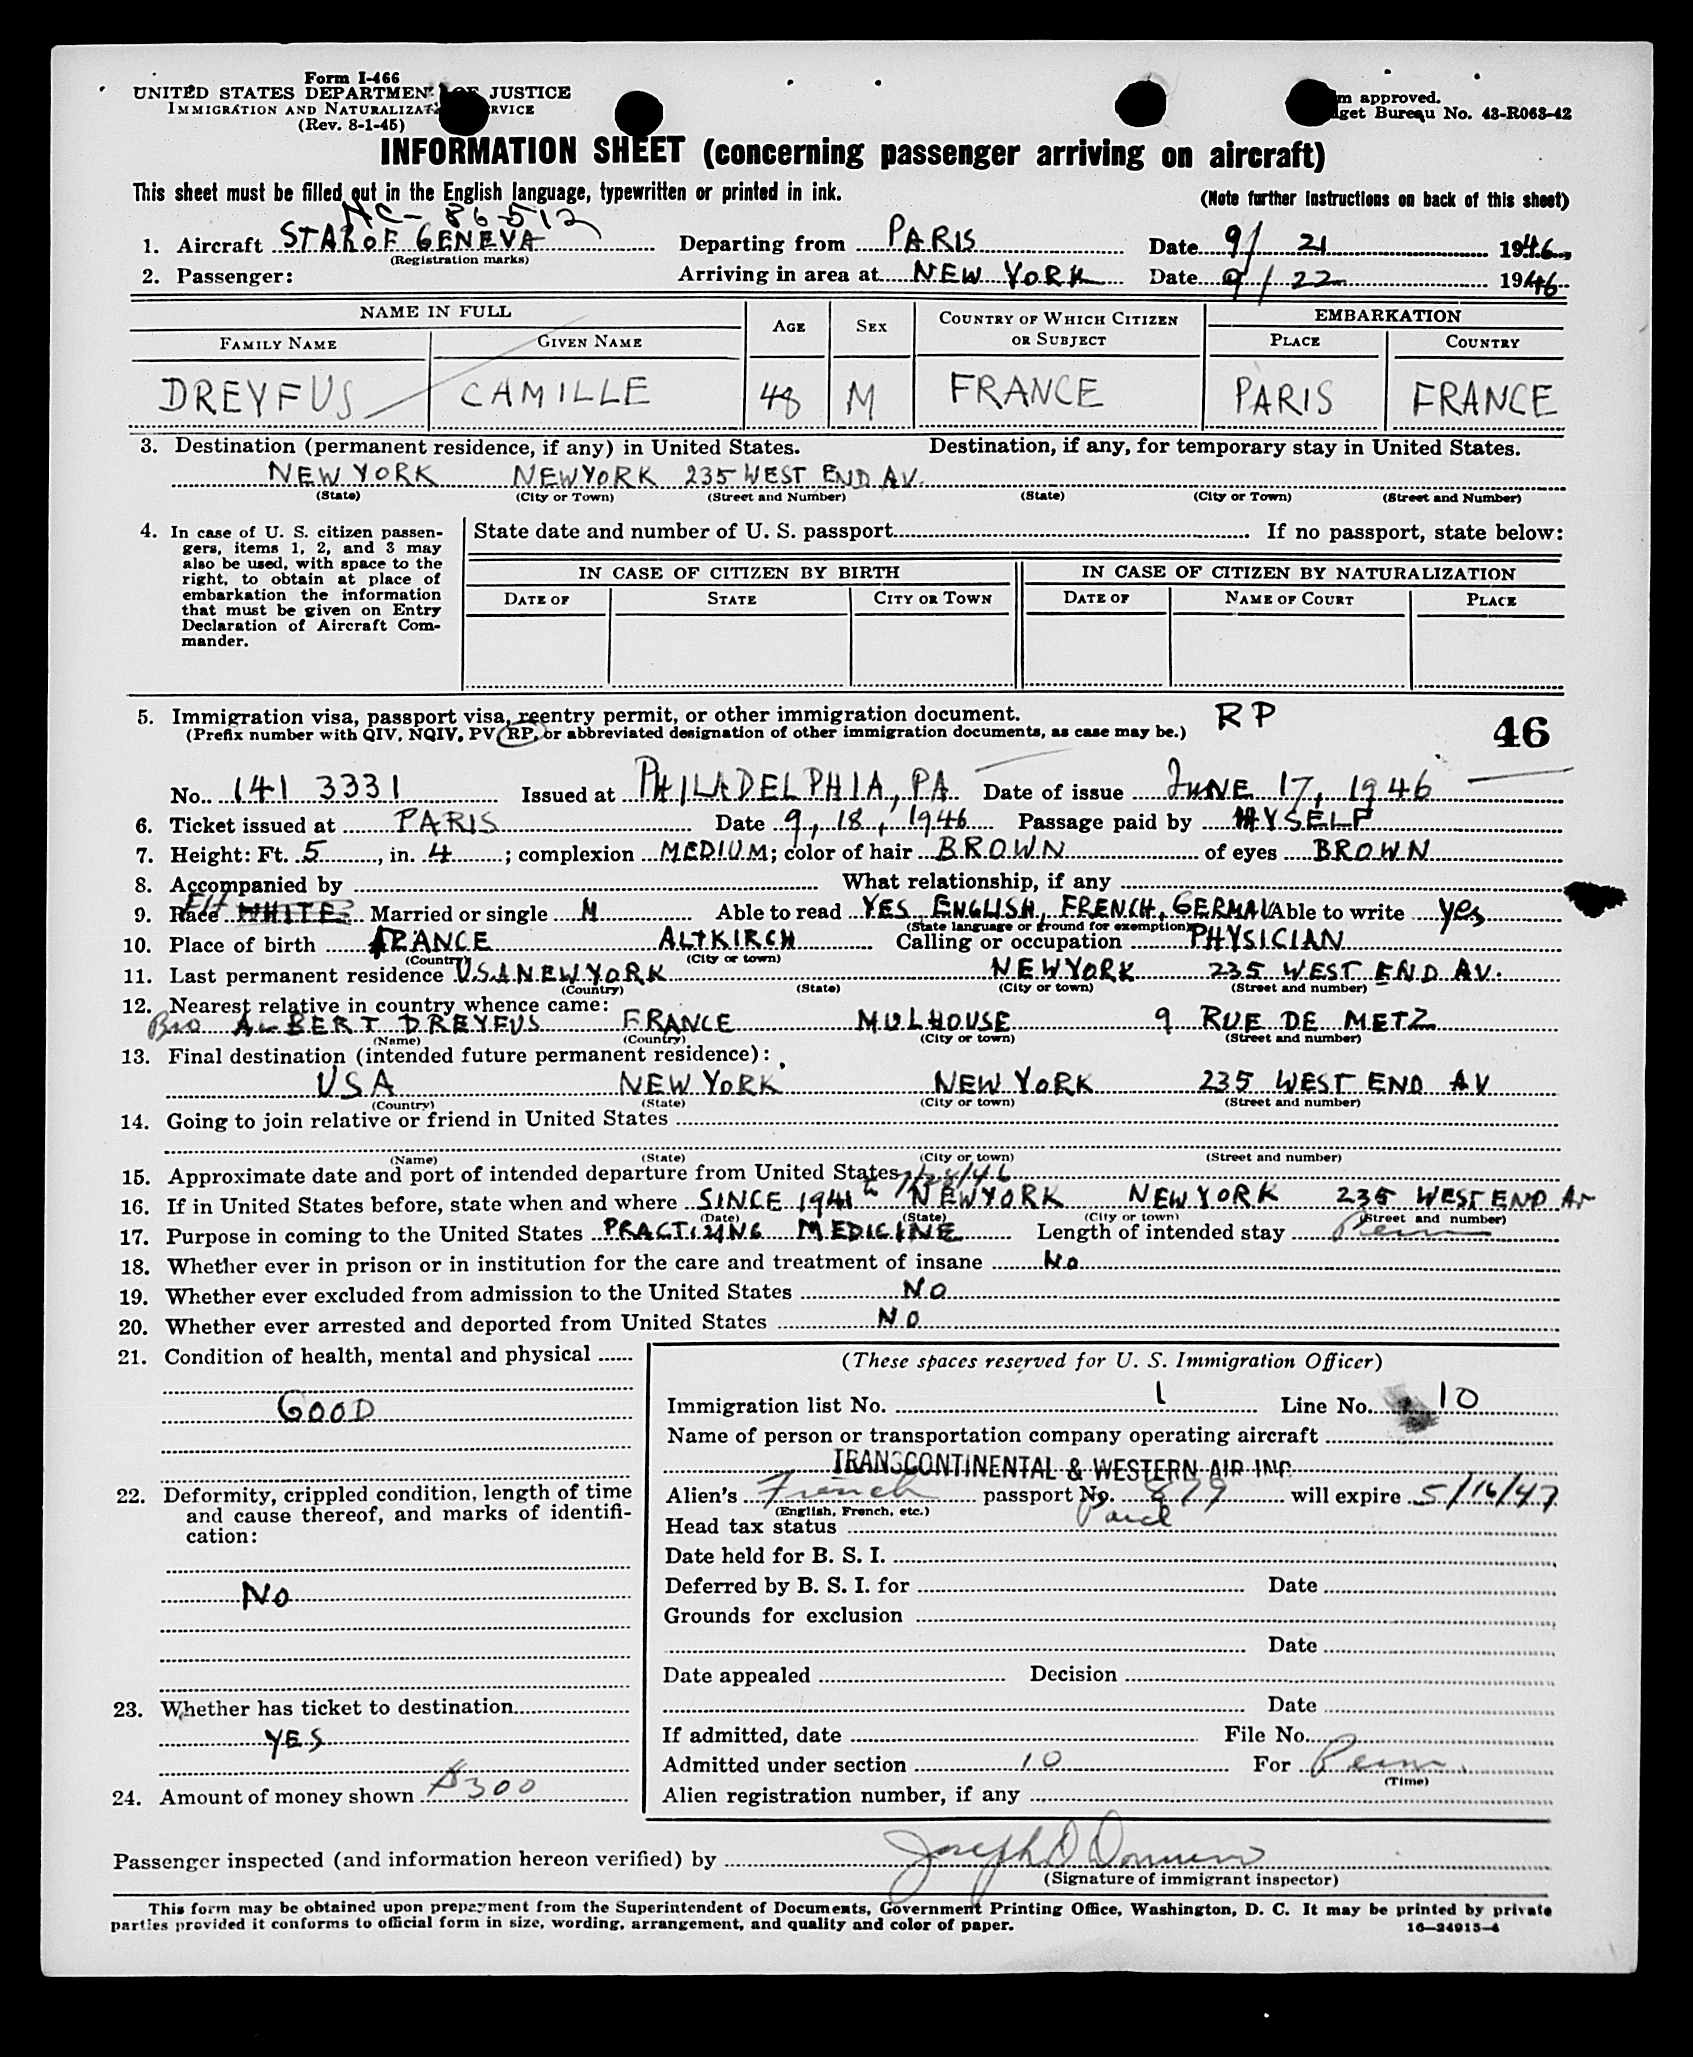 Form I-466
UNITED STATES DEPARTMENT OF JUSTICE
IMMIGRATION AND NATURALIZATION SERVICE
(Rev. 8-1-45)
approved.
Bureau No. 43-R063-42
INFORMATION SHEET (concerning passenger arriving on aircraft)
This sheet must be filled out in the English language, typewritten or printed in ink.
(Note further instructions on back of this sheet)
NC-86512
1. Aircraft STAR OF GENEVA Departing from PARIS Date 9/21 1946,
(Registration marks)
2. Passenger: Arriving in area at NEW YORK Date 9/22 1946
NAME IN FULL AGE SEX COUNTRY OF WHICH CITIZEN OR SUBJECT EMBARKATION
FAMILY NAME GIVEN NAME PLACE COUNTRY
DREYFUS CAMILLE 48 M FRANCE PARIS FRANCE
3. Destination (permanent residence, if any) in United States. Destination, if any, for temporary stay in United States.
NEW YORK NEW YORK 235 WEST END AV.
(State) (City or Town) (Street and Number) (State) (City or Town) (Street and Number)
4. In case of U. S. citizen passen-
gers, items 1, 2, and 3 may
also be used, with space to the
right, to obtain at place of
embarkation the information
that must be given on Entry
Declaration of Aircraft Com-
mander.
State date and number of U. S. passport If no passport, state below:
IN CASE OF CITIZEN BY BIRTH IN CASE OF CITIZEN BY NATURALIZATION
DATE OF STATE CITY OR TOWN DATE OF NAME OF COURT PLACE
5. Immigration visa, passport visa, reentry permit, or other immigration document. RP
(Prefix number with QIV, NQIV, PV, RP, or abbreviated designation of other immigration documents, as case may be.)
46
No. 141 3331 Issued at PHILADELPHIA, PA Date of issue JUNE 17, 1946
6. Ticket issued at PARIS Date 9, 18, 1946 Passage paid by MYSELF
7. Height: Ft. 5, in. 4; complexion MEDIUM; color of hair BROWN of eyes BROWN
8. Accompanied by What relationship, if any
9. Race WHITE Married or single M Able to read YES ENGLISH, FRENCH, GERMAN Able to write yes
(State language or ground for exemption)
10. Place of birth FRANCE ALTKIRCH Calling or occupation PHYSICIAN
(Country) (City or town)
11. Last permanent residence USA NEW YORK NEW YORK 235 WEST END AV.
(Country) (State) (City or town) (Street and number)
12. Nearest relative in country whence came:
Bro ALBERT DREYFUS FRANCE MULHOUSE 9 RUE DE METZ
(Name) (Country) (City or town) (Street and number)
13. Final destination (intended future permanent residence):
USA NEW YORK NEW YORK 235 WEST END AV
(Country) (State) (City or town) (Street and number)
14. Going to join relative or friend in United States
(Name) (State) (City or town) (Street and number)
15. Approximate date and port of intended departure from United States
16. If in United States before, state when and where SINCE 1941 to 7/28/46 NEW YORK NEW YORK 235 WEST END AV
(Date) (State) (City or town) (Street and number)
17. Purpose in coming to the United States PRACTIZING MEDICINE Length of intended stay Perm
18. Whether ever in prison or in institution for the care and treatment of insane No
19. Whether ever excluded from admission to the United States NO
20. Whether ever arrested and deported from United States NO
21. Condition of health, mental and physical
GOOD
22. Deformity, crippled condition, length of time
and cause thereof, and marks of identifi-
cation:
NO
23. Whether has ticket to destination
YES
24. Amount of money shown $300
(These spaces reserved for U. S. Immigration Officer)
Immigration list No. 1 Line No. 10
Name of person or transportation company operating aircraft
TRANSCONTINENTAL & WESTERN AIR INC.
Alien's French passport No. 879 will expire 5/16/47
(English, French, etc.)
Head tax status Paid
Date held for B. S. I.
Deferred by B. S. I. for Date
Grounds for exclusion
Date
Date appealed Decision
Date
If admitted, date File No.
Admitted under section 10 For Perm.
(Time)
Alien registration number, if any
Passenger inspected (and information hereon verified) by Joseph D
(Signature of immigrant inspector)
This form may be obtained upon prepayment from the Superintendent of Documents, Government Printing Office, Washington, D. C. It may be printed by private
parties provided it conforms to official form in size, wording, arrangement, and quality and color of paper.
16—24915-4